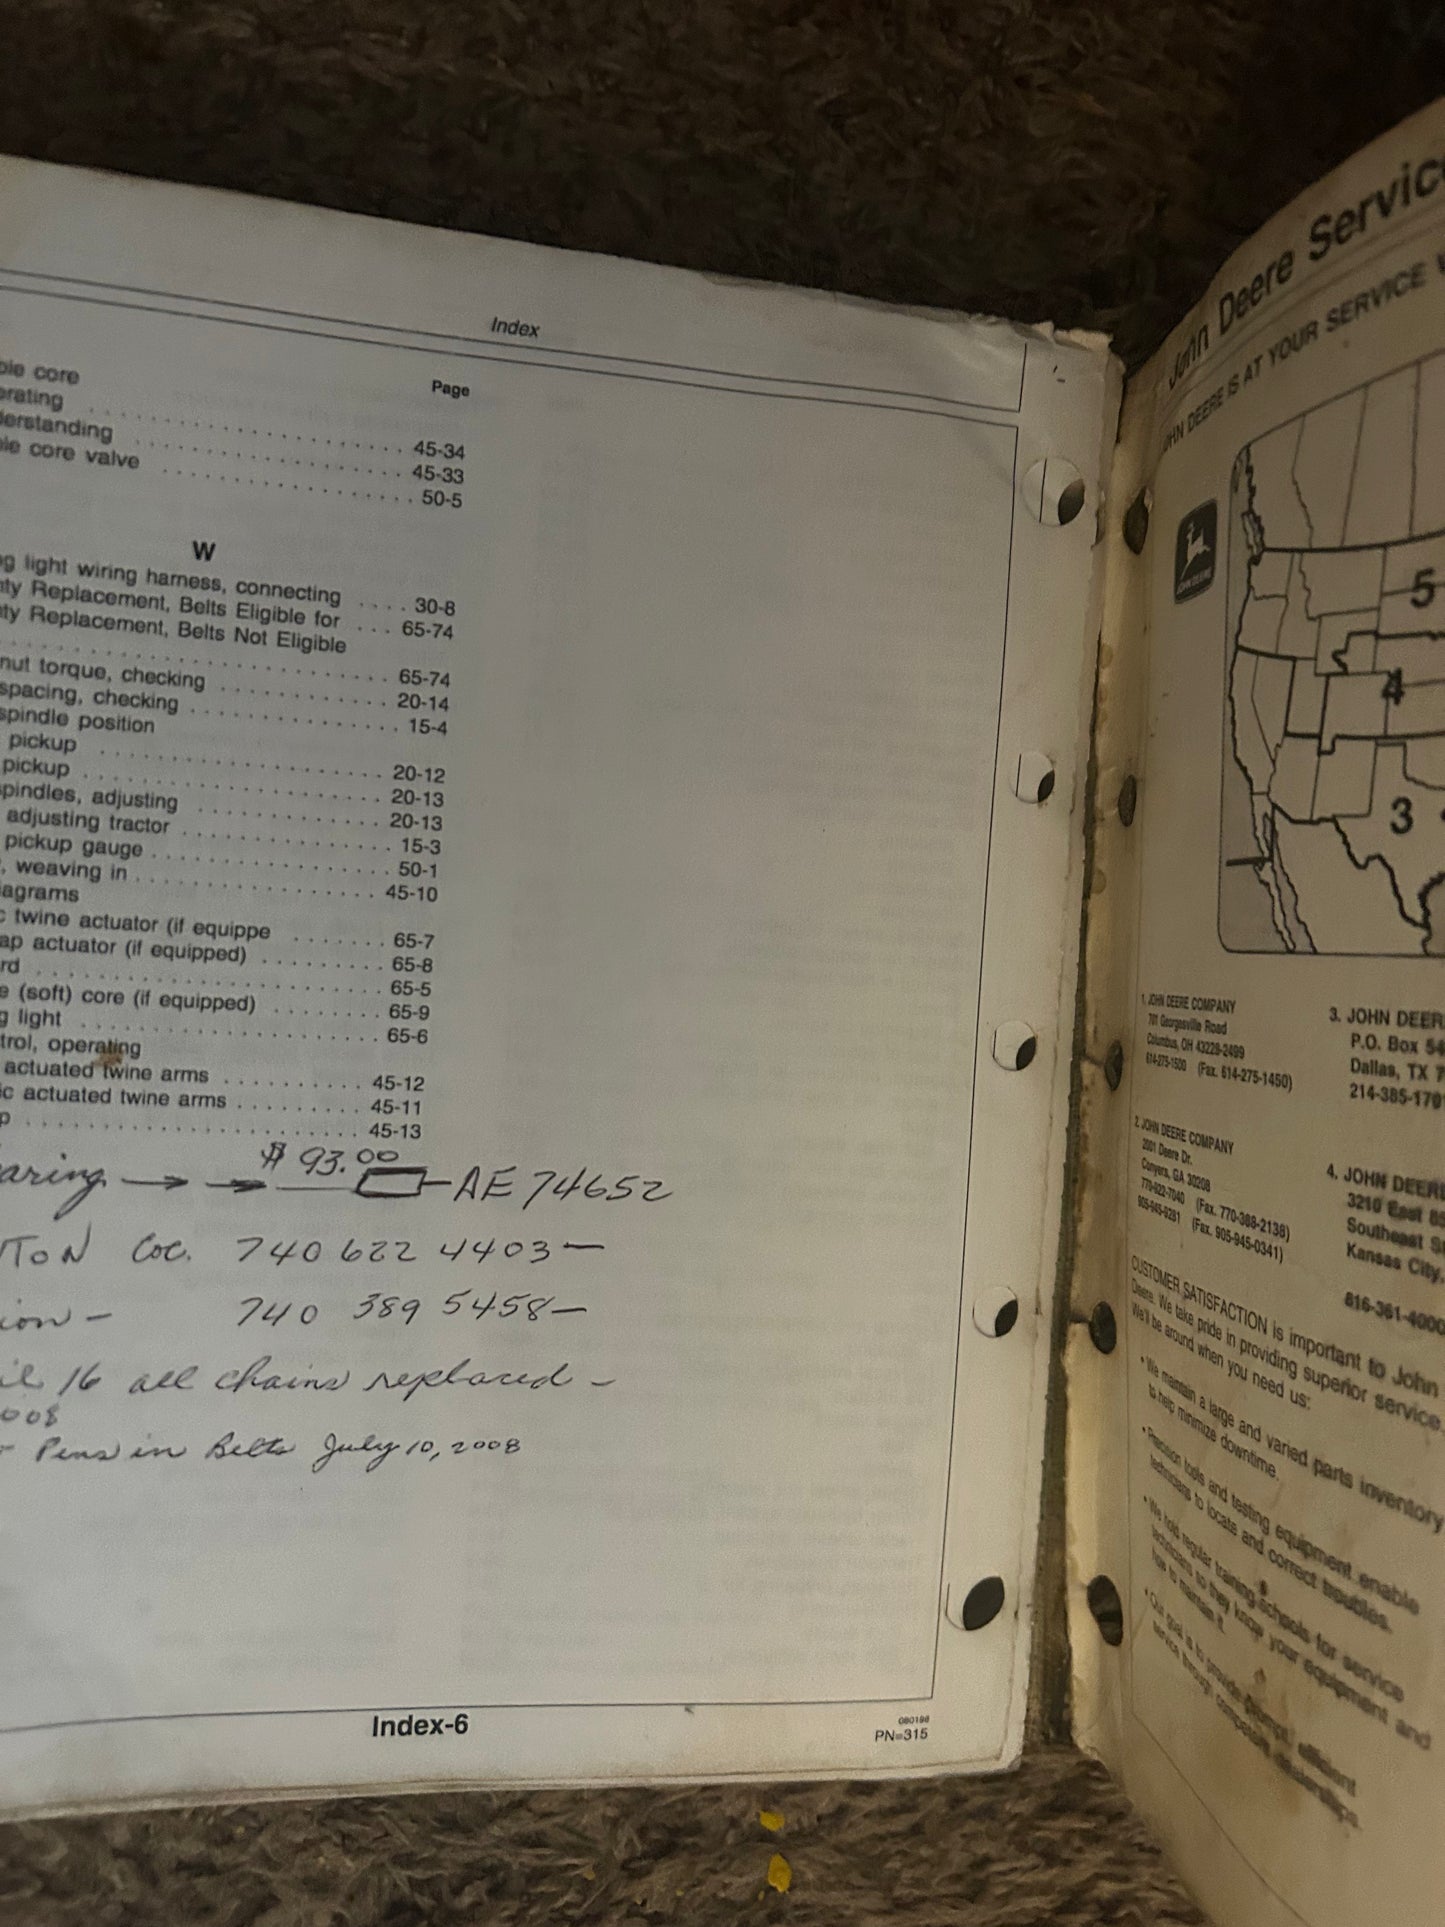 Index
Page
ble core
erating . . . . . . . . . . . . . . . . . . . . . . . . 45-34
derstanding . . . . . . . . . . . . . . . . . . . . 45-33
ble core valve . . . . . . . . . . . . . . . . . . 50-5
W
ng light wiring harness, connecting . . . . 30-8
nty Replacement, Belts Eligible for . . . 65-74
nty Replacement, Belts Not Eligible
. . . . . . . . . . . . . . . . . . . . . . . . 65-74
nut torque, checking . . . . . . . . . . . . . . 20-14
spacing, checking . . . . . . . . . . . . . . . . 15-4
spindle position
pickup . . . . . . . . . . . . . . . . . . . . . . . 20-12
pickup . . . . . . . . . . . . . . . . . . . . . . . 20-13
spindles, adjusting . . . . . . . . . . . . . . . 20-13
adjusting tractor . . . . . . . . . . . . . . . . 15-3
pickup gauge . . . . . . . . . . . . . . . . . . 50-1
, weaving in . . . . . . . . . . . . . . . . . . . 45-10
iagrams
c twine actuator (if equippe . . . . . . . 65-7
ap actuator (if equipped) . . . . . . . . . 65-8
rd . . . . . . . . . . . . . . . . . . . . . . . . . 65-5
e (soft) core (if equipped) . . . . . . . . 65-9
g light . . . . . . . . . . . . . . . . . . . . . . 65-6
trol, operating
actuated twine arms . . . . . . . . . . 45-12
ic actuated twine arms . . . . . . . . . 45-11
p . . . . . . . . . . . . . . . . . . . . . . . . . 45-13
$ 93.00
aring → → AE 74652
TON Coc. 740 622 4403 —
ion — 740 389 5458 —
il 16 all chains replaced —
008
Pins in Belts July 10, 2008
Index-6
080198
PN=315
John Deere Servic
JOHN DEERE IS AT YOUR SERVICE
JOHN DEERE
5
4
3
1. JOHN DEERE COMPANY
701 Georgesville Road
Columbus, OH 43228-2499
614-275-1500 (Fax. 614-275-1450)
2. JOHN DEERE COMPANY
2001 Deere Dr.
Conyers, GA 30208
770-922-7040 (Fax. 770-388-2138)
905-945-9281 (Fax. 905-945-0341)
3. JOHN DEER
P.O. Box 54
Dallas, TX 7
214-385-1701
4. JOHN DEERE
3210 East 85
Southeast S
Kansas City,
816-361-4000
CUSTOMER SATISFACTION is important to John
Deere. We take pride in providing superior service.
We'll be around when you need us:
• We maintain a large and varied parts inventory
to help minimize downtime.
• Precision tools and testing equipment enable
technicians to locate and correct troubles.
• We hold regular training schools for service
technicians so they know your equipment and
how to maintain it.
• Our goal is to provide prompt, efficient
service through competent dealerships.